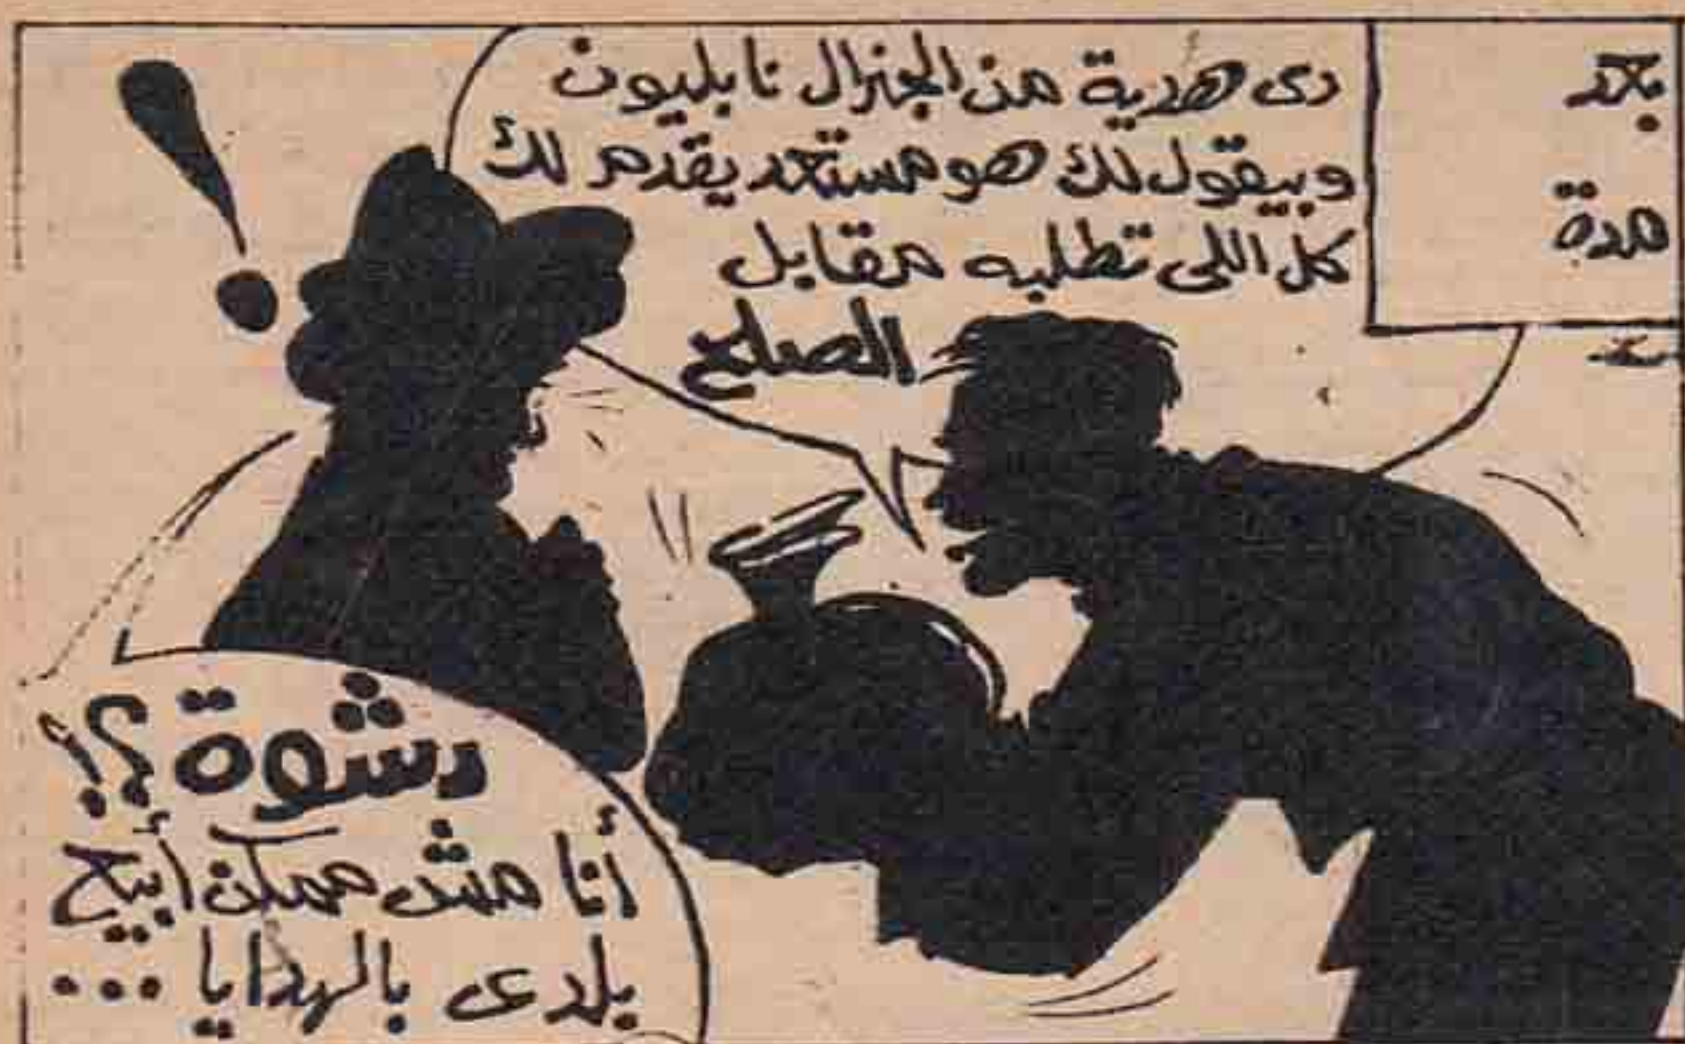 بعد
مدة
دى هدية من الجنرال نابليون
وبيقول لك هو مستعد يقدم لك
كل اللى تطلبه مقابل
الصلح
!
رشوة؟!
أنا مش ممكن أبيع
بلدى بالهدايا ...